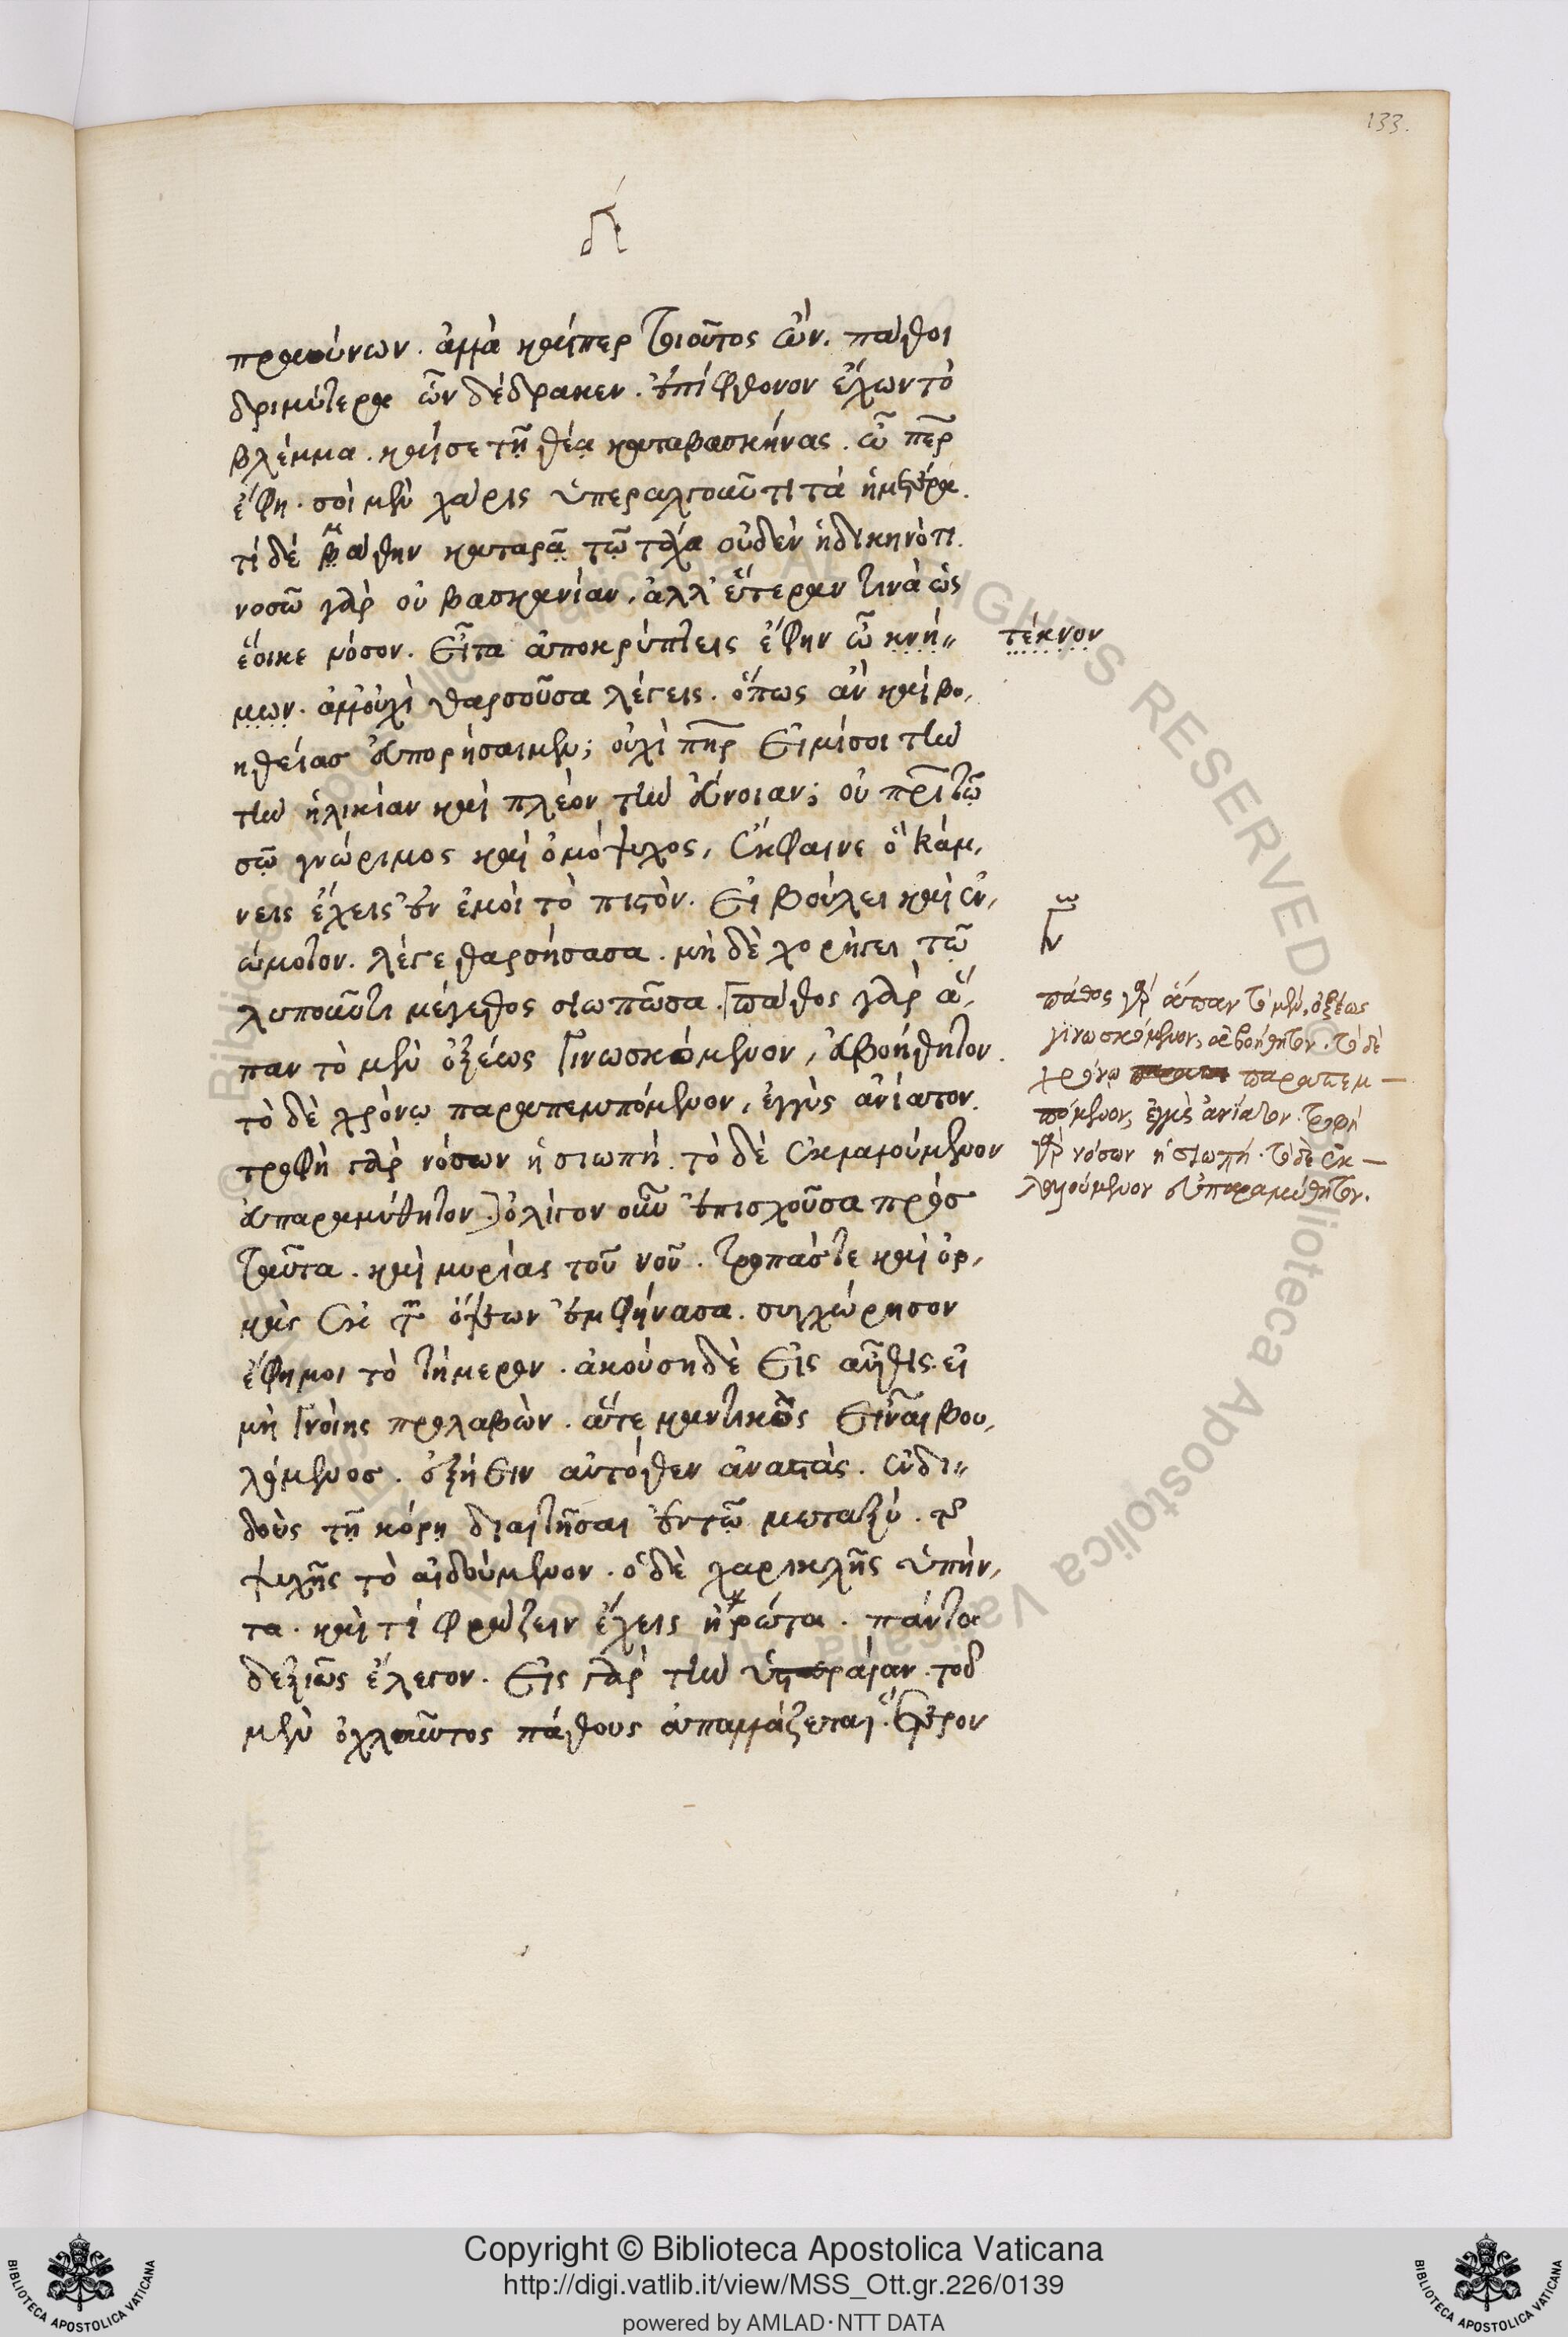 133.
δ΄
πραύνων. ἀλλὰ καίπερ τοιοῦτος ὤν. πάθοι
δριμύτερα ὧν δέδρακεν. ἐπίφθονον ἔχων τὸ
βλέμμα. καί σε τῆ θέα καταβασκήνας. ὦ περ
ἔφη. σοὶ μὲν χάρις ὑπεραλγοῦντι τὰ ἡμέτερα.
τί δὲ μάθην καταρᾶ τῶ τάχα οὐδὲν ἠδικηκότι.
νοσῶ γὰρ οὐ βασκανίαν, ἀλλ' ἑτέραν τινὰ ὡς
ἔοικε νόσον. Εἶτα ἀποκρύπτεις ἔφην ὦ κνή〃 τέκνον
μων. ἀλλ' οὐχὶ θαρσοῦσα λέγεις. ὅπως ἂν καὶ βο,
ηθείας εὐπορήσαιμεν; οὐχὶ πηρ εἰμί σοι τὴν
τὴν ἡλικίαν καὶ πλέον τὴν εὔνοιαν; οὐ πρὶ τῶ
σῶ γνώριμος καὶ ὁμόψυχος, ἔκφαινε ὃ κάμ,
νεις ἔχεις ἐν ἐμοὶ τὸ πιστόν. Εἰ βούλει καὶ ἐν,
ώμοτον. λέγε θαρσήσασα. μὴ δὲ χορήγει τῶ
λυποῦντι μέγεθος σιωπῶσα. [πάθος γὰρ ἅ,
παν τὸ μὲν ὀξέως γινωσκόμενον, εὐβοήθητον.
τὸ δὲ χρόνω παραπεμπόμενον, ἐγγὺς ἀνίατον.
τροφὴ γὰρ νόσων ἡ σιωπή. τὸ δὲ ἐκλαλούμενον
εὐπαραμύθητον.) ὀλίγον οὖν ἐπισχοῦσα πρὸς
ταῦτα. καὶ μυρίας τοῦ νοῦ. τροπάς τε καὶ ὁρ,
μὰς ἐκ τῶν ὄψεων ἐμφήνασα. συγχώρησον
ἔφη μοι τὸ τήμερον. ἀκούση δὲ εἰς αὖθις. εἰ
μὴ γνοίης προλαβών. ἅτε μαντικὸς εἶναι βου,
λόμενος. ἐξήειν αὐτόθεν ἀναστάς. ἐνδι〃
δοὺς τῆ κόρη διαιτῆσαι ἐν τῶ μεταξύ. τῆς
ψυχῆς τὸ αἰδούμενον. ὁ δὲ χαρικλῆς ὑπήν,
τα. καὶ τί φράζειν ἔχεις ἠρώτα. πάντα
δεξιῶς ἔλεγον. Εἰς γὰρ τὴν ὑστεραίαν. τοῦ
μὲν ὀχλοῦντος πάθους ἀπαλλάξεται. ἕτερον
ω
ν
πάθος γὰρ ἅπαν τὸ μὲν, ὀξέως
γινωσκόμενον, εὐβοήθητον. τὸ δὲ
χρόνω παραπεμ —
πόμενον, ἐγγὺς ἀνίατον. τροφὴ
γὰρ νόσων ἡ σιωπή. τὸ δὲ ἐκ —
λαλούμενον εὐπαραμύθητον.
Copyright © Biblioteca Apostolica Vaticana
http://digi.vatlib.it/view/MSS_Ott.gr.226/0139
powered by AMLAD·NTT DATA
BIBLIOTECA APOSTOLICA VATICANA
BIBLIOTECA APOSTOLICA VATICANA